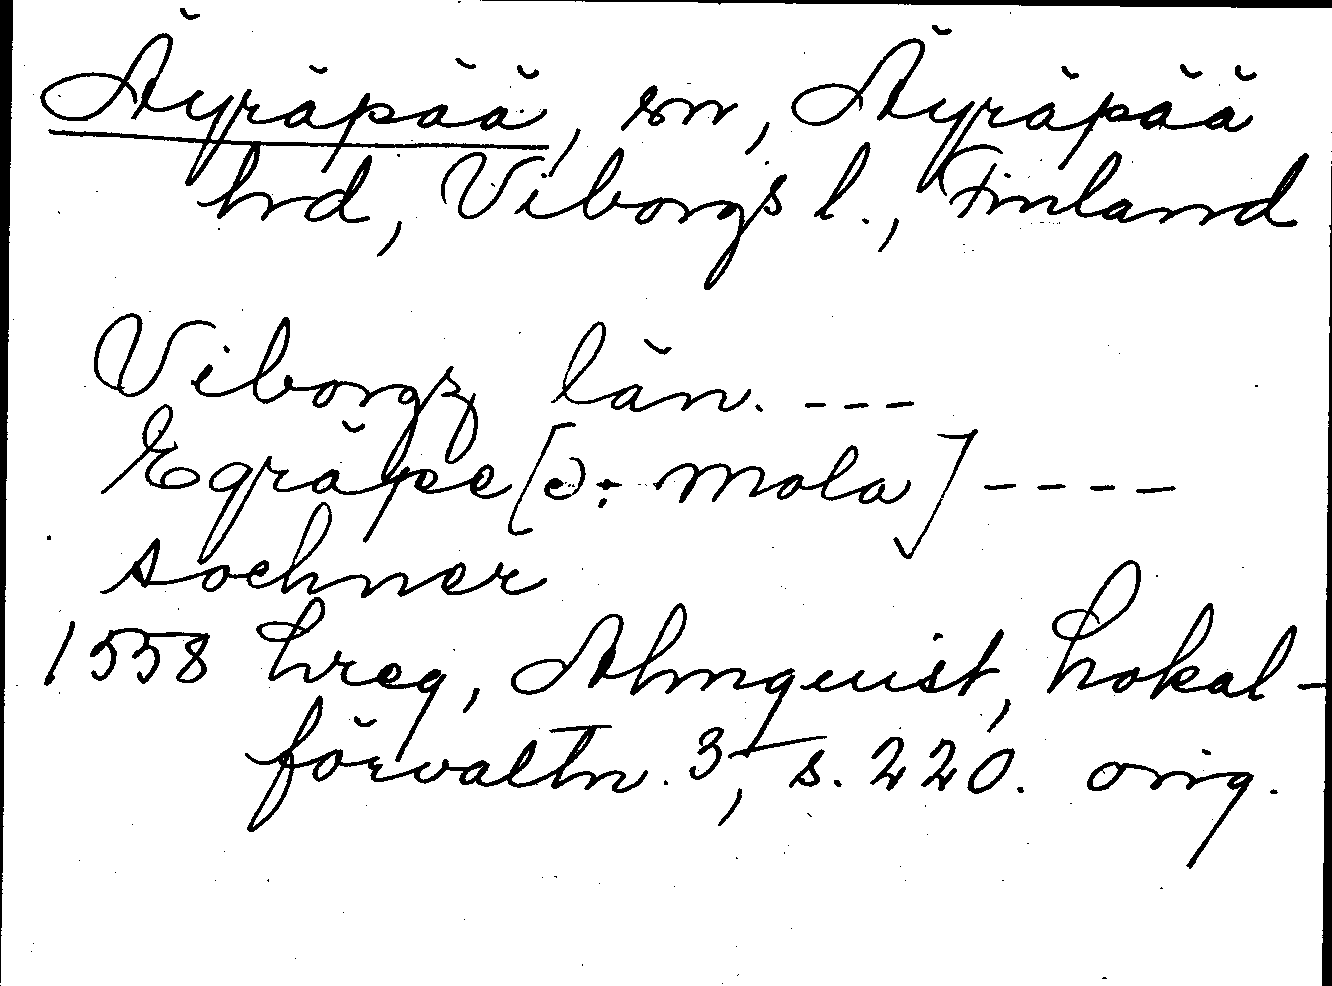 Äyräpää, sn, Äyräpää
hrd, Viborgs l., Finland
Viborgz län. ---
Egräpe [ɔ: Mola] ----
sochner
1558 Lreg, Almquist, Lokal-
förvaltn. 3, s. 220. orig.